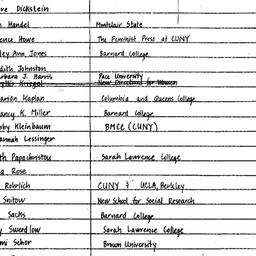 re Dickstein
Handel Montclair State
ence Howe The Feminist Press at CUNY
ley Ann Jones Barnard College
dith Johnston
rbara J. Harris Pace University
New Directions for Women
arion Kaplan Columbia and Queens College
ancy K. Miller Barnard College
bby Kleinbaum BMCC (CUNY)
annah Lessinger
th Papachristou Sarah Lawrence College
a Rose
Rohrlich CUNY & UCLA, Berkley
Snitow New School for Social Research
Sacks Barnard College
y Swerdlow Sarah Lawrence College
mi Schor Brown University